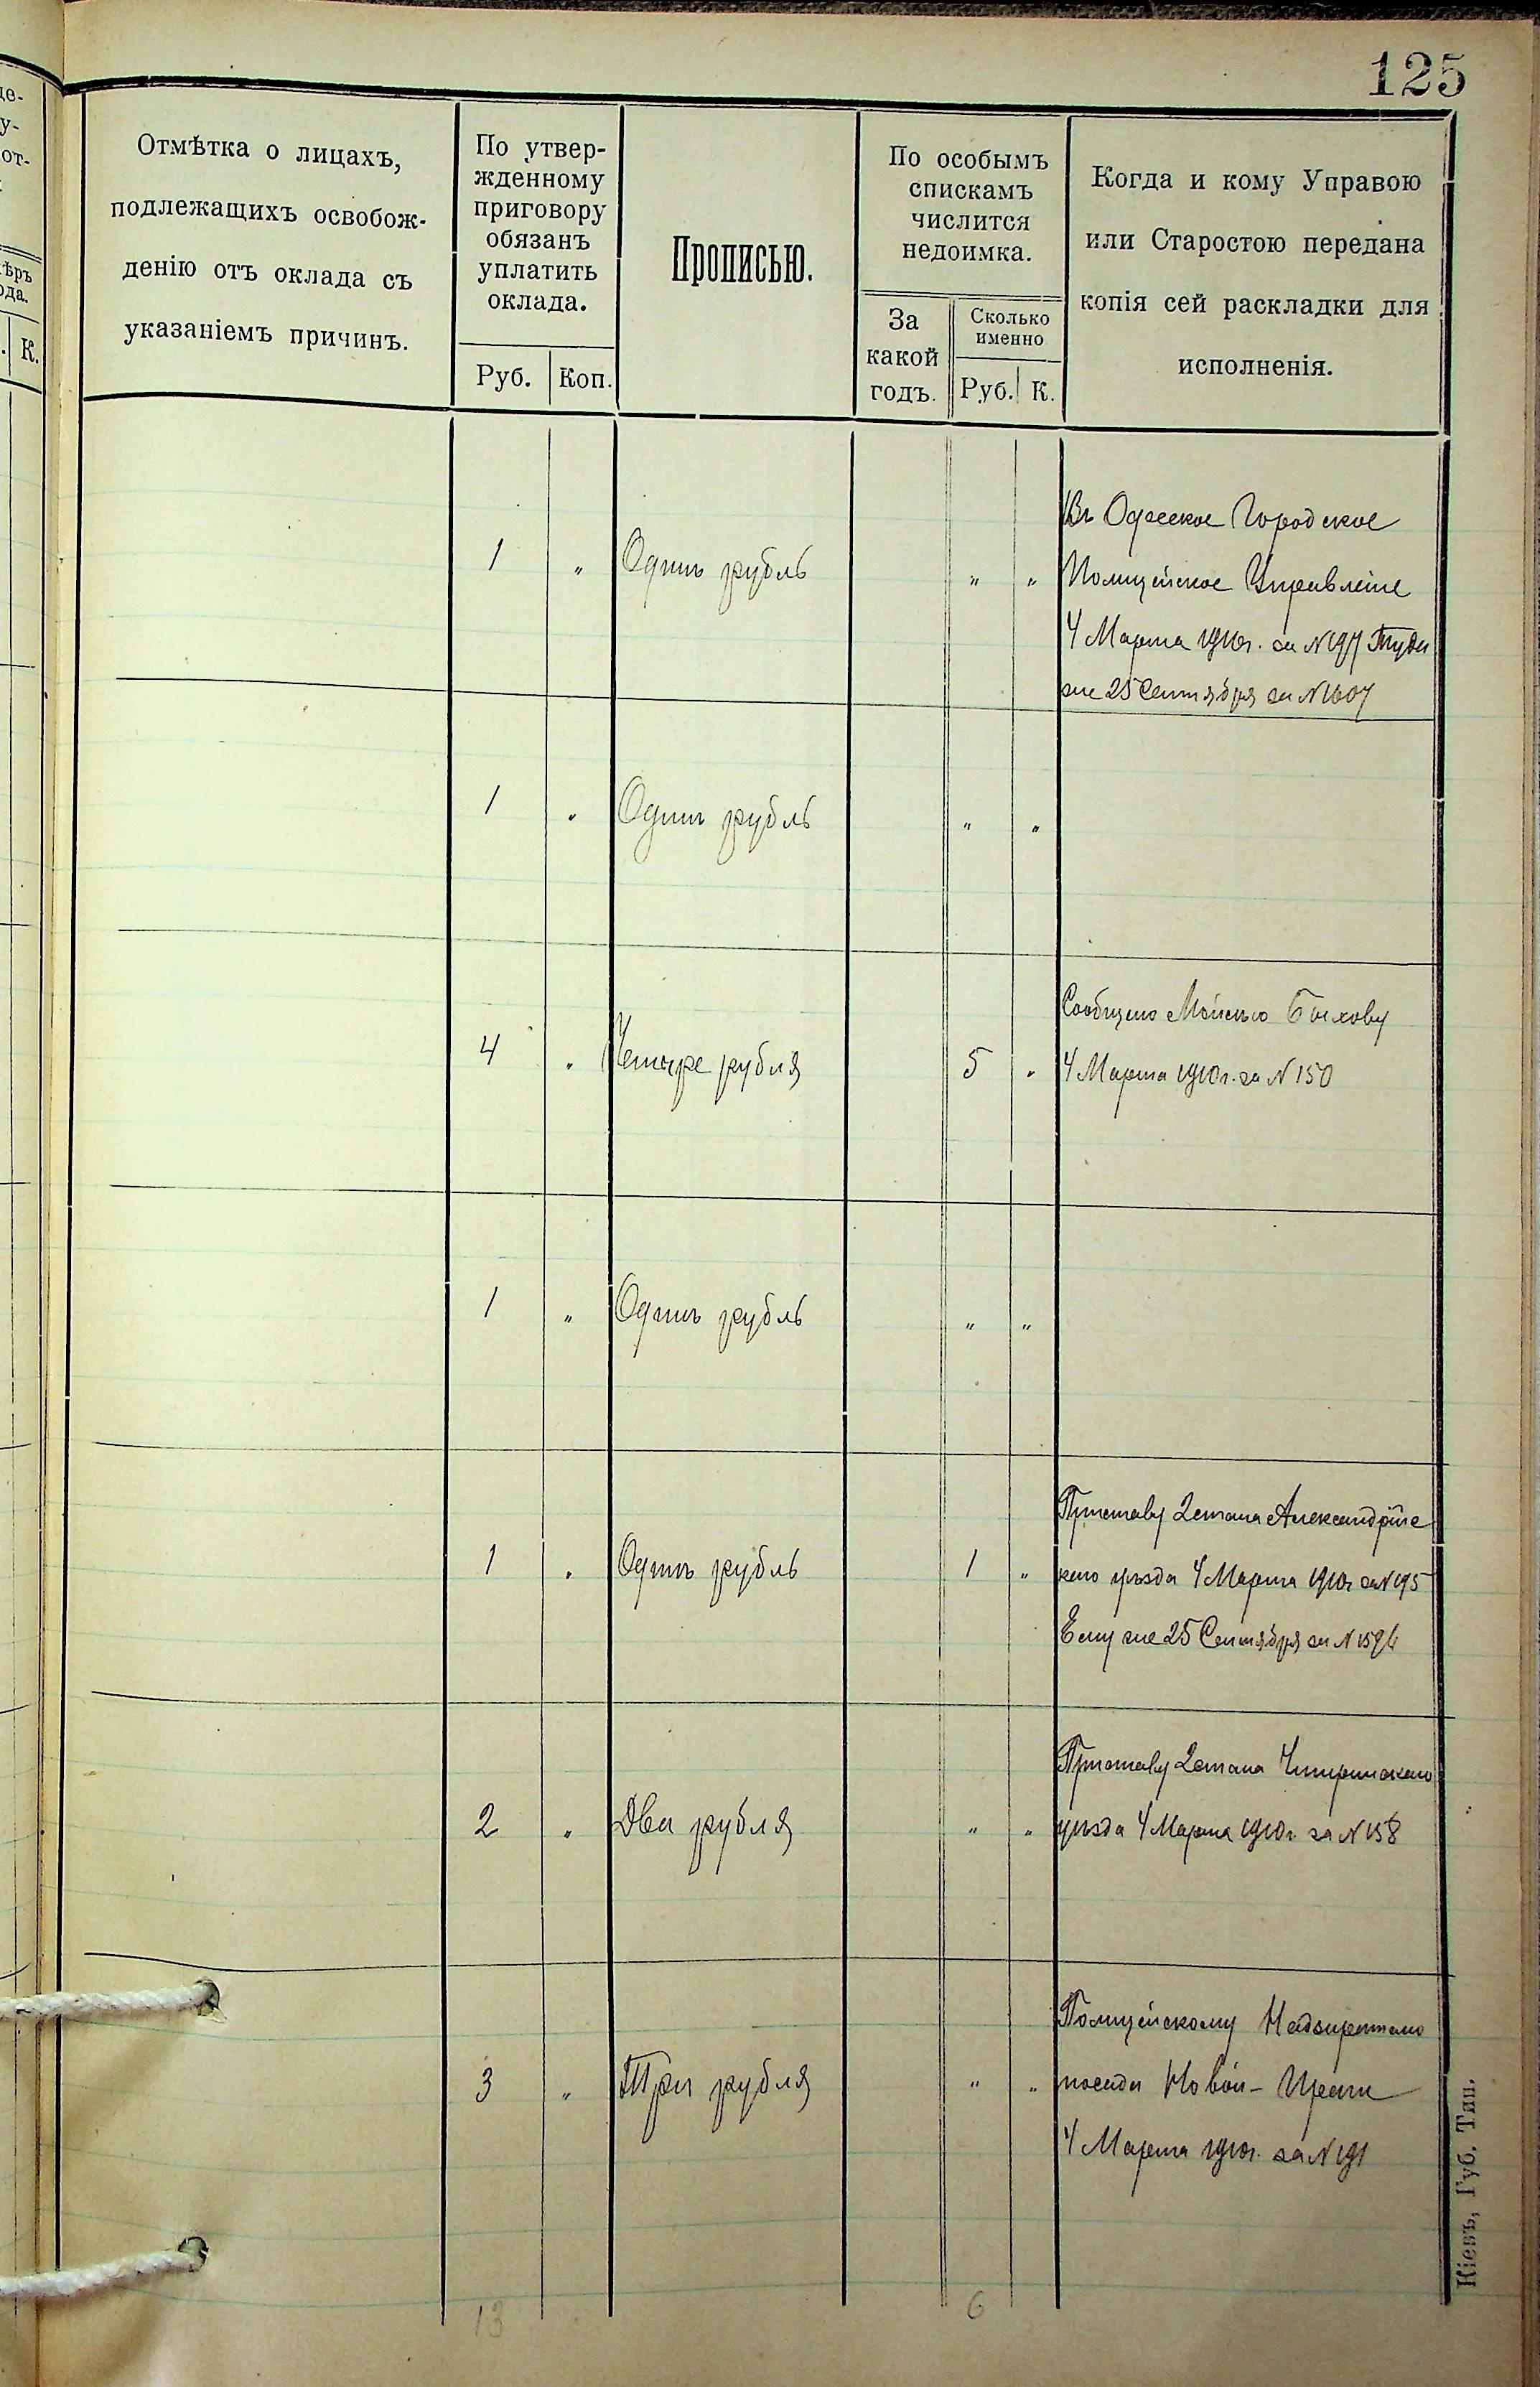 125
Отмѣтка о лицахъ,
подлежащихъ освобож-
денію отъ оклада съ
указаніемъ причинъ.
По утвер-
жденному
приговору
обязанъ
уплатить
оклада.
Руб. Коп.
Прописью.
По особымъ
спискамъ
числится
недоимка.
За
какой
годъ.
Сколько
именно
Руб. К.
Когда и кому Управою
или Старостою передана
копія сей раскладки для
исполненія.
1 " Одинъ рубль " "
Въ Одесское Городское
Полицейское Управленіе
4 Марта 1910г. за №197 Туда
же 25 Сентября за №1607
1 " Одинъ рубль " "
4 " Четыре рубля 5 "
Сообщено Мойсею Быхову
4 Марта 1910г. за №150
1 " Одинъ рубль " "
1 " Одинъ рубль 1 "
Приставу 2 стана Александрійс
каго уѣзда 4 Марта 1910г за №195
Ему же 25 Сентября за №1594
2 " Два рубля " "
Приставу 2 стана Чигиринскаго
уѣзда 4 Марта 1910г за №158
3 " Три рубля " "
Полицейскому Надзирателю
посада Новой-Праги
4 Марта 1910г. за №191
13 6
Кіевъ, Губ. Тип.
ѣръ
ода.
К.